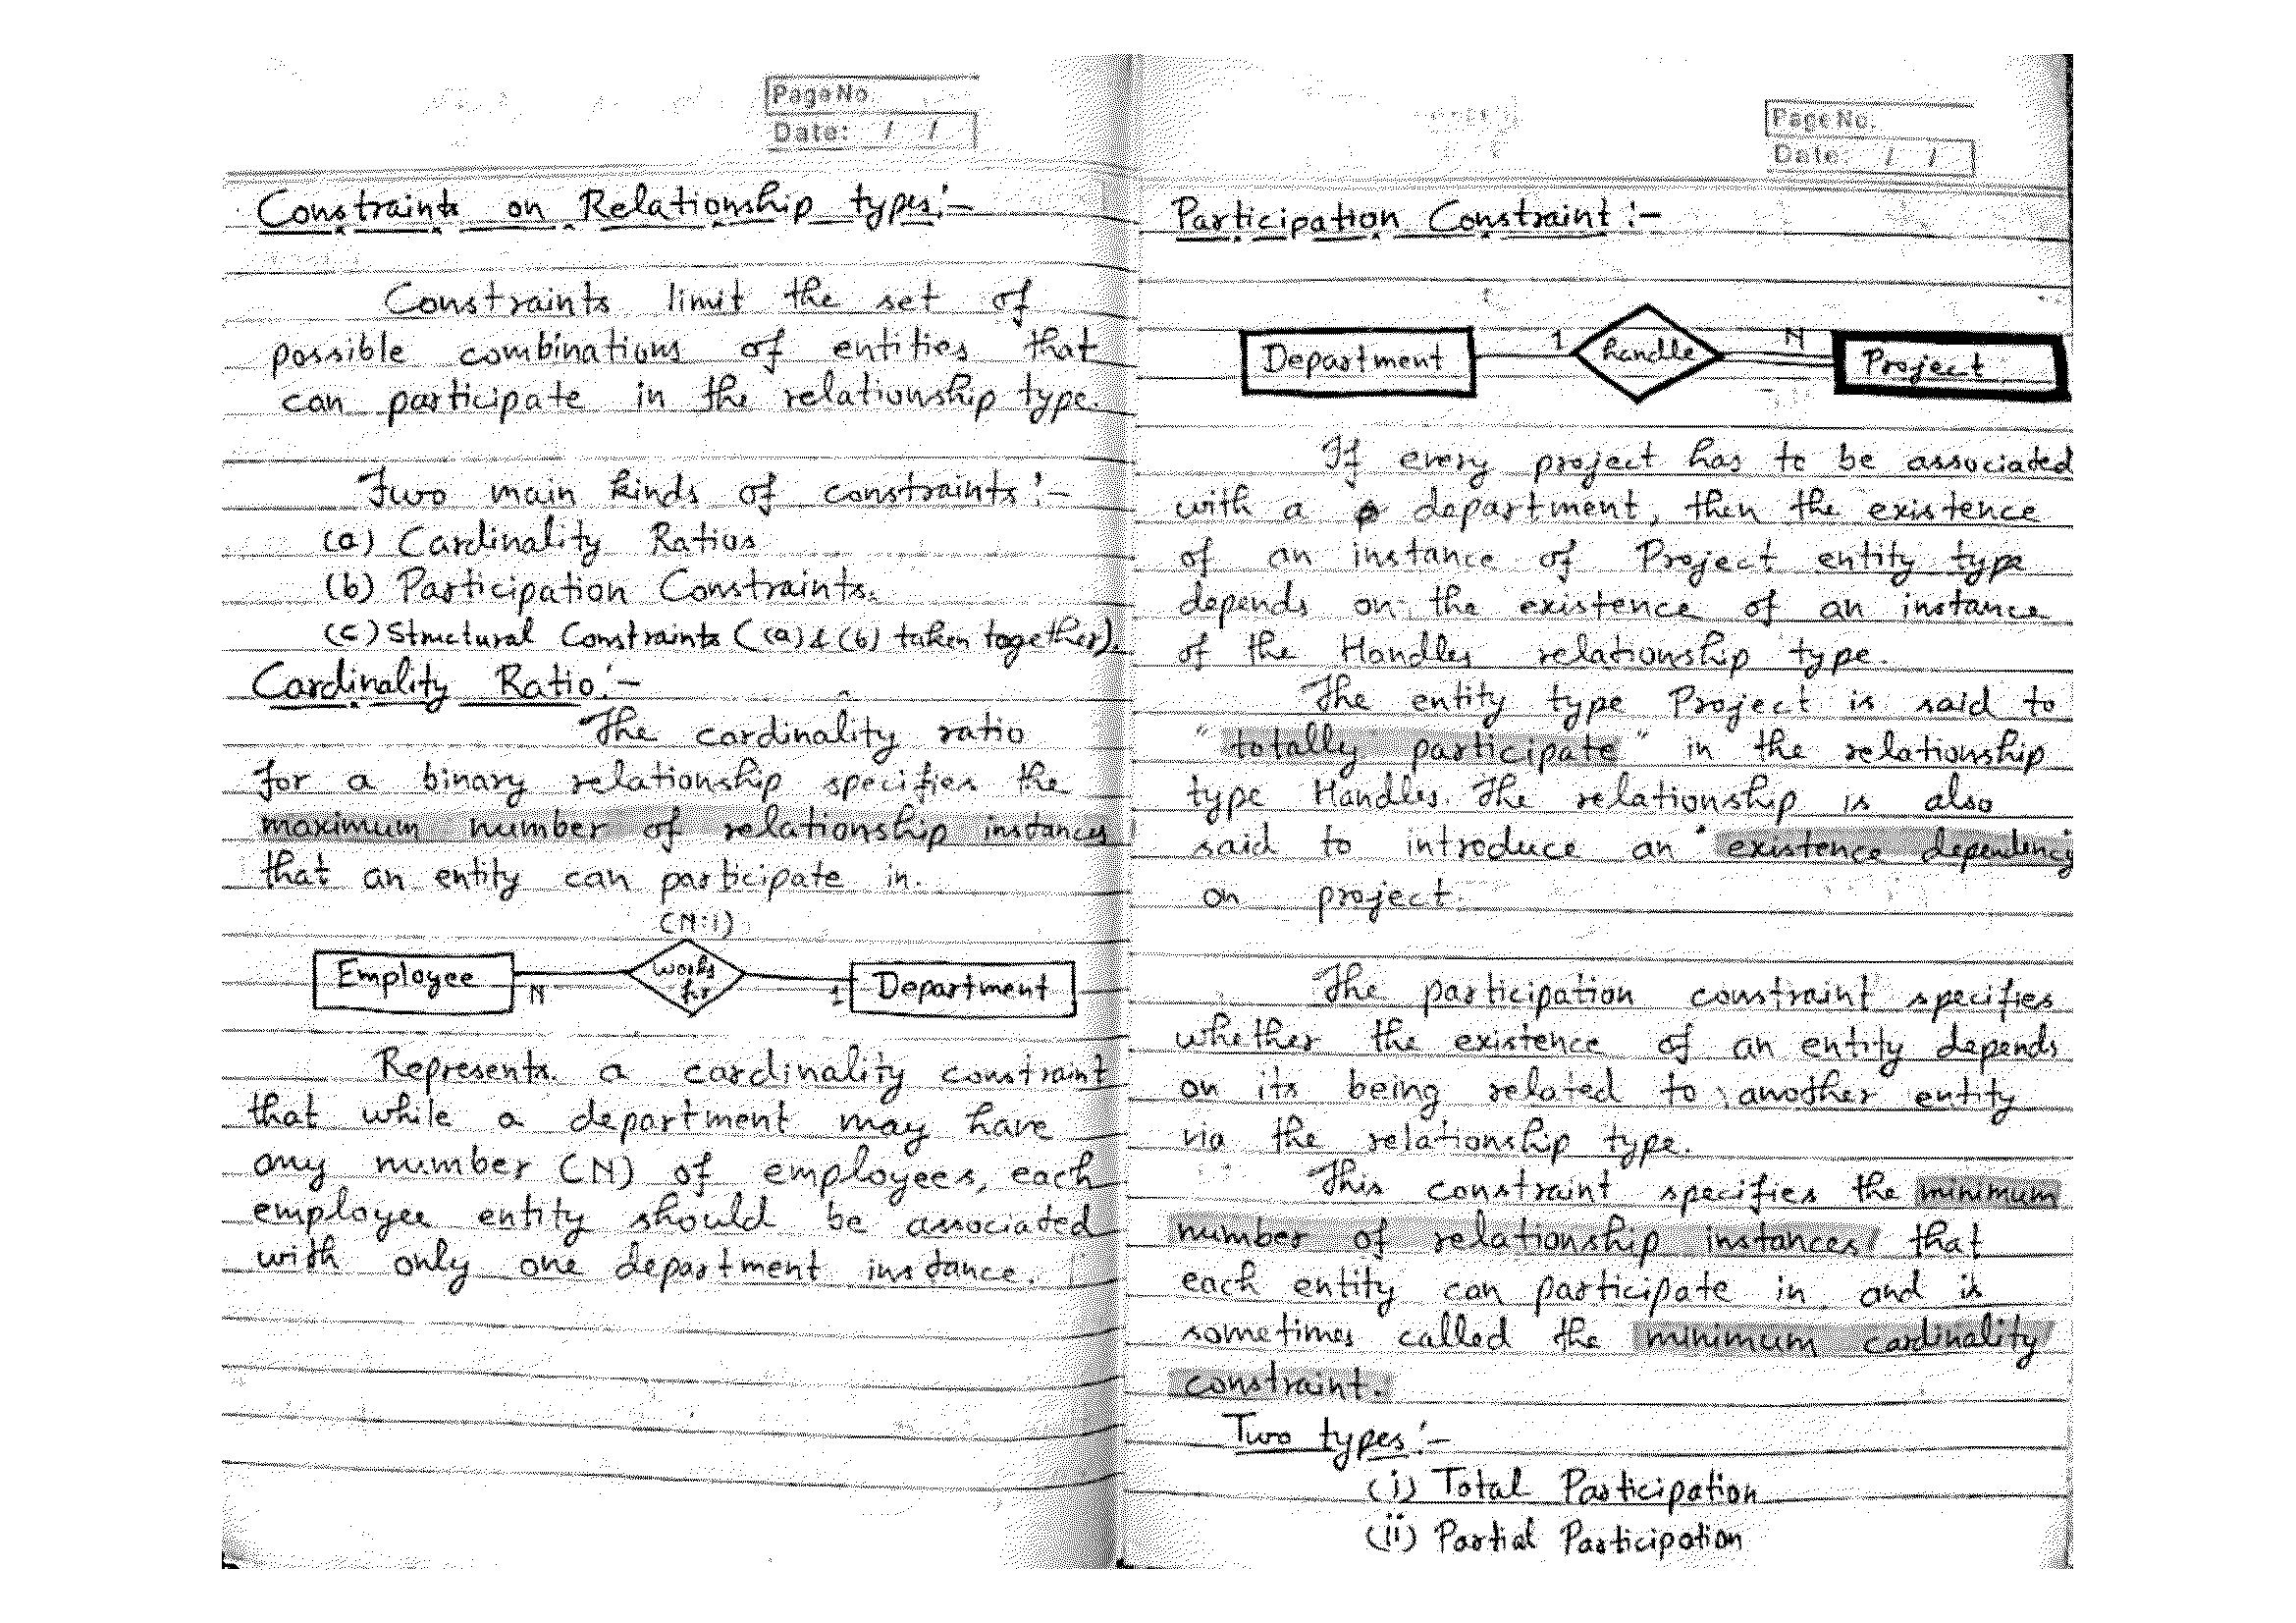 Page No.
Date: / /
Constraints on Relationship types:-
Constraints limit the set of
possible combinations of entities that
can participate in the relationship type.
Two main kinds of constraints:-
(a) Cardinality Ratios
(b) Participation Constraints.
(c) Structural Constraints ((a) & (b) taken together).
Cardinality Ratio:-
The cardinality ratio
for a binary relationship specifies the
maximum number of relationship instances
that an entity can participate in.
(N:1)
Employee N works for 1 Department
Represents a cardinality constraint
that while a department may have
any number (N) of employees, each
employee entity should be associated
with only one department instance.
Page No.
Date: / /
Participation Constraint:-
Department 1 handle N Project
If every project has to be associated
with a department, then the existence
of an instance of Project entity type
depends on the existence of an instance
of the Handles relationship type.
The entity type Project is said to
"totally participate" in the relationship
type Handles. The relationship is also
said to introduce an "existence dependency
on project.
The participation constraint specifies
whether the existence of an entity depends
on its being related to another entity
via the relationship type.
This constraint specifies the minimum
number of relationship instances that
each entity can participate in and is
sometimes called the minimum cardinality
constraint.
Two types:-
(i) Total Participation
(ii) Partial Participation